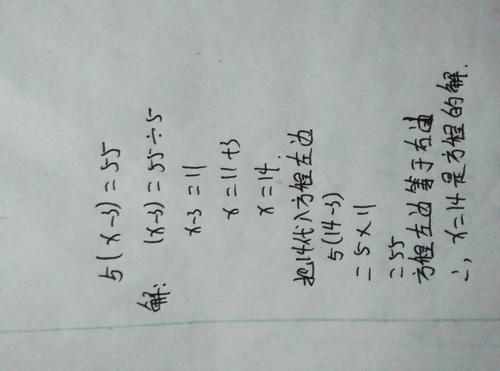 5(x-3)=55
解: (x-3)=55÷5
x-3=11
x=11+3
x=14.
把14代入方程左边
5(14-3)
=5×11
=55
方程左边等于右边
∴x=14是方程的解.